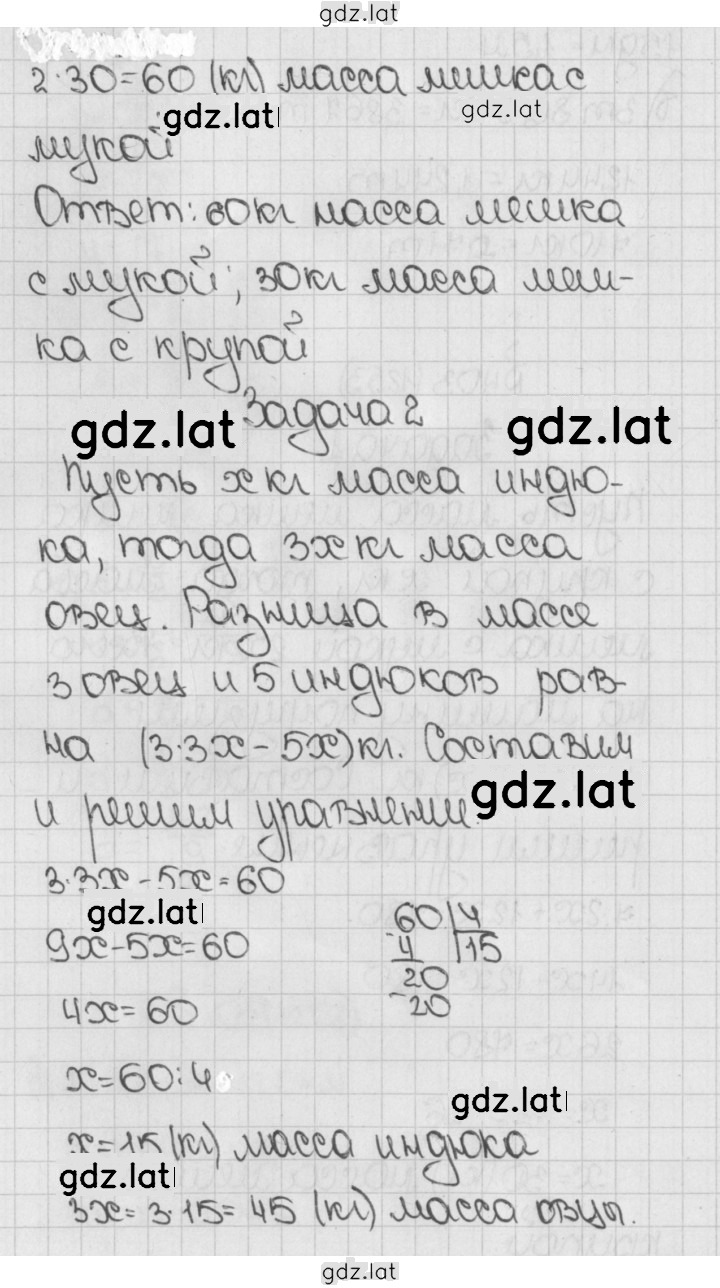 gdz.lat
2·30=60 (кг) масса мешка с
gdz.lat
gdz.lat
мукой
Ответ: 60 кг масса мешка
с мукой, 30 кг масса меш-
ка с крупой
Задача 2
gdz.lat
gdz.lat
Пусть х кг масса индю-
ка, тогда 3х кг масса
овец. Разница в массе
3 овец и 5 индюков рав-
на (3·3х - 5х) кг. Составим
gdz.lat
и решим уравнение.
3·3х - 5х = 60
gdz.lat
60 4
9х - 5х = 60
4 15
20
4х = 60
- 20
х = 60 : 4
gdz.lat
х = 15 (кг) масса индюка
gdz.lat
3х = 3·15 = 45 (кг) масса овцы.
gdz.lat